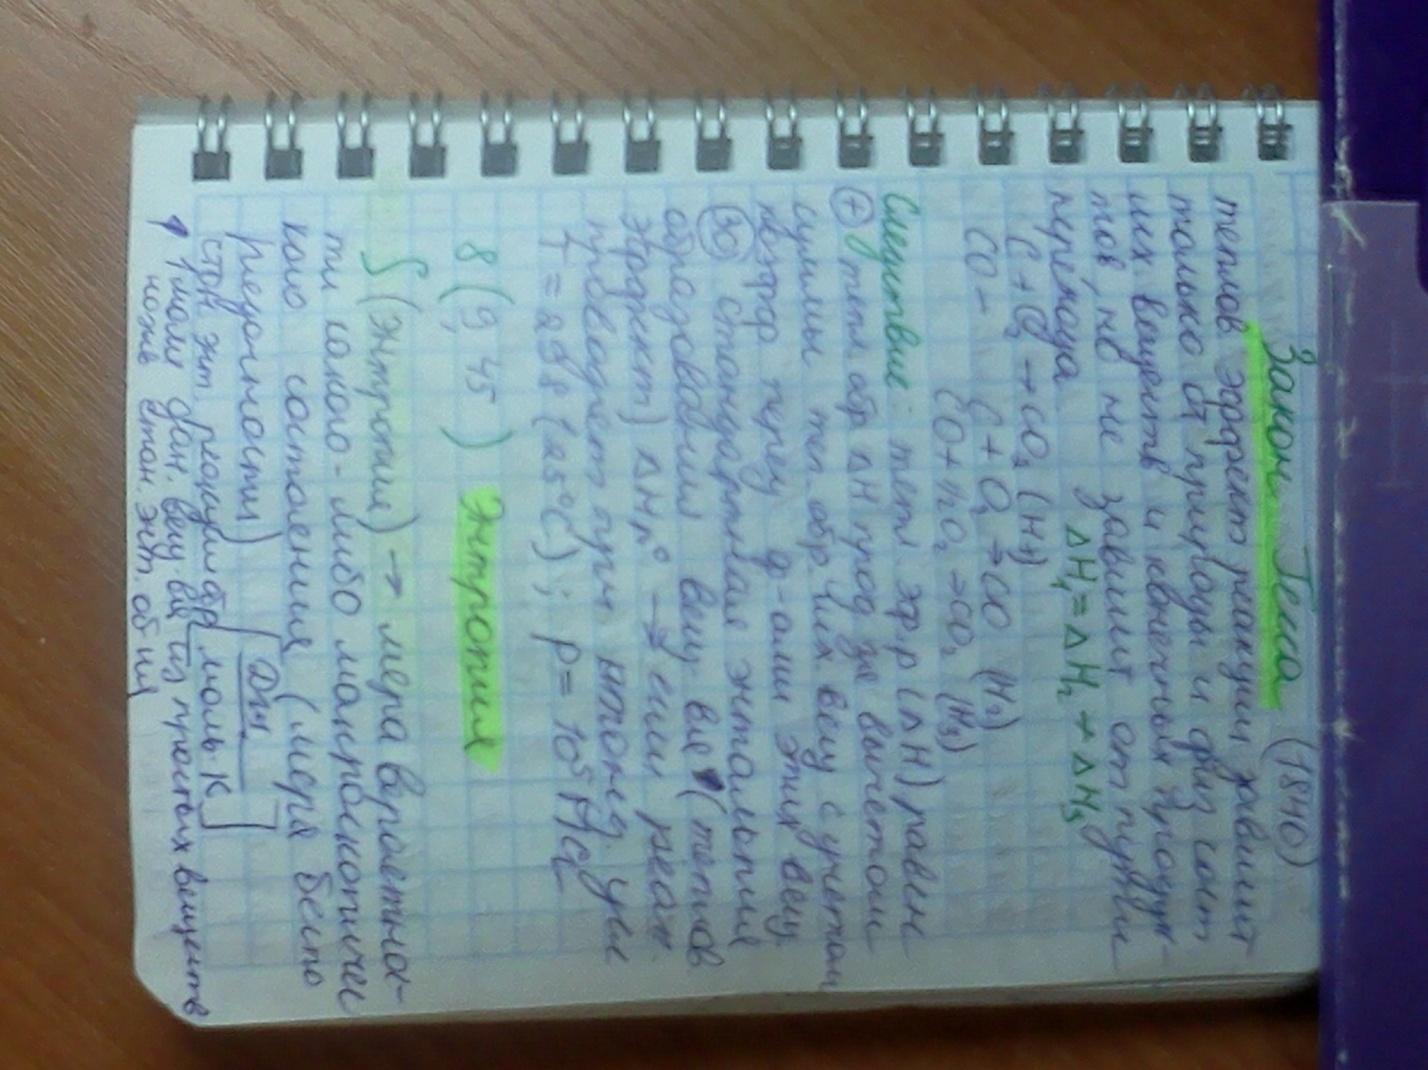 Закон Гесса (1840)
теплов эффект реакции зависит
только от природы и физ сост
исх. веществ и конечных продук-
тов, но не зависит от пути
перехода ΔH₁ = ΔH₂ + ΔH₃
C + O₂ → CO₂ (H₁)
CO - C + O₂ → CO (H₂)
CO + ½O₂ → CO₂ (H₃)
Следствие: тепл эфф (ΔH) равен
+ тепл обр ΔH прод за вычетом
суммы теп. обр. исх вещ с учетом
коэфф перед ф-лами этих вещ.
стандартная энтальпия
образования вещ-ва (теплов
эффект) ΔH₀ → если реак.
проводят при станд. усл
T = 298 (25°C); p = 10⁵ Па
8 (9, 45) Энтропия
S (энтропия) → мера вероятнос-
ти какого-либо макроскопичес
кого состояния (мера беспо
рядочности) [Дж
станд энт. реакции обр моль·К]
1 моля дан. вещ ва из простых веществ
назыв стан энт. обр